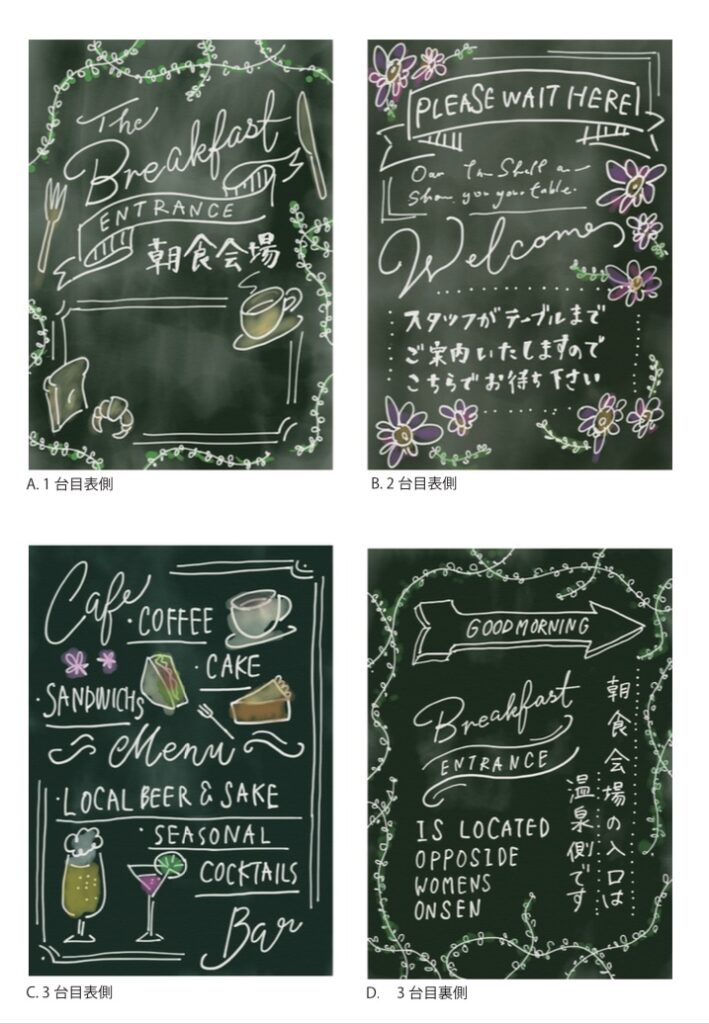 The
Breakfast
ENTRANCE
朝食会場
A. 1 台目表側
PLEASE WAIT HERE!
Show you your table.
Welcome
スタッフがテーブルまで
ご案内いたしますので
こちらでお待ち下さい
B. 2 台目表側
Cafe
・COFFEE
・CAKE
・SANDWICHS
Menu
・LOCAL BEER & SAKE
・SEASONAL
COCKTAILS
Bar
C. 3 台目表側
GOOD MORNING
Breakfast
ENTRANCE
IS LOCATED
OPPOSIDE
WOMENS
ONSEN
朝食会場の入口は
温泉側です
D. 3 台目裏側